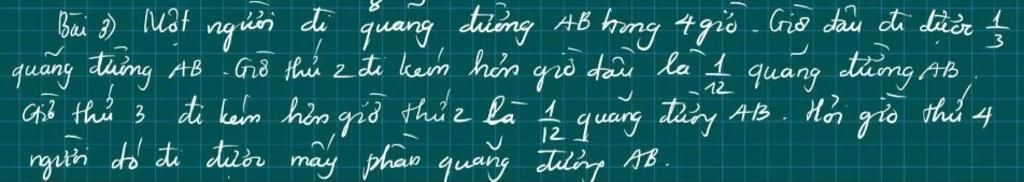 Bài 3) Một người đi quãng đường AB trong 4 giờ. Giờ đầu đi được 1/3
quãng đường AB. Giờ thứ 2 đi kém hơn giờ đầu là 1/12 quãng đường AB.
Giờ thứ 3 đi kém hơn giờ thứ 2 là 1/12 quãng đường AB. Hỏi giờ thứ 4
người đó đi được mấy phần quãng đường AB.